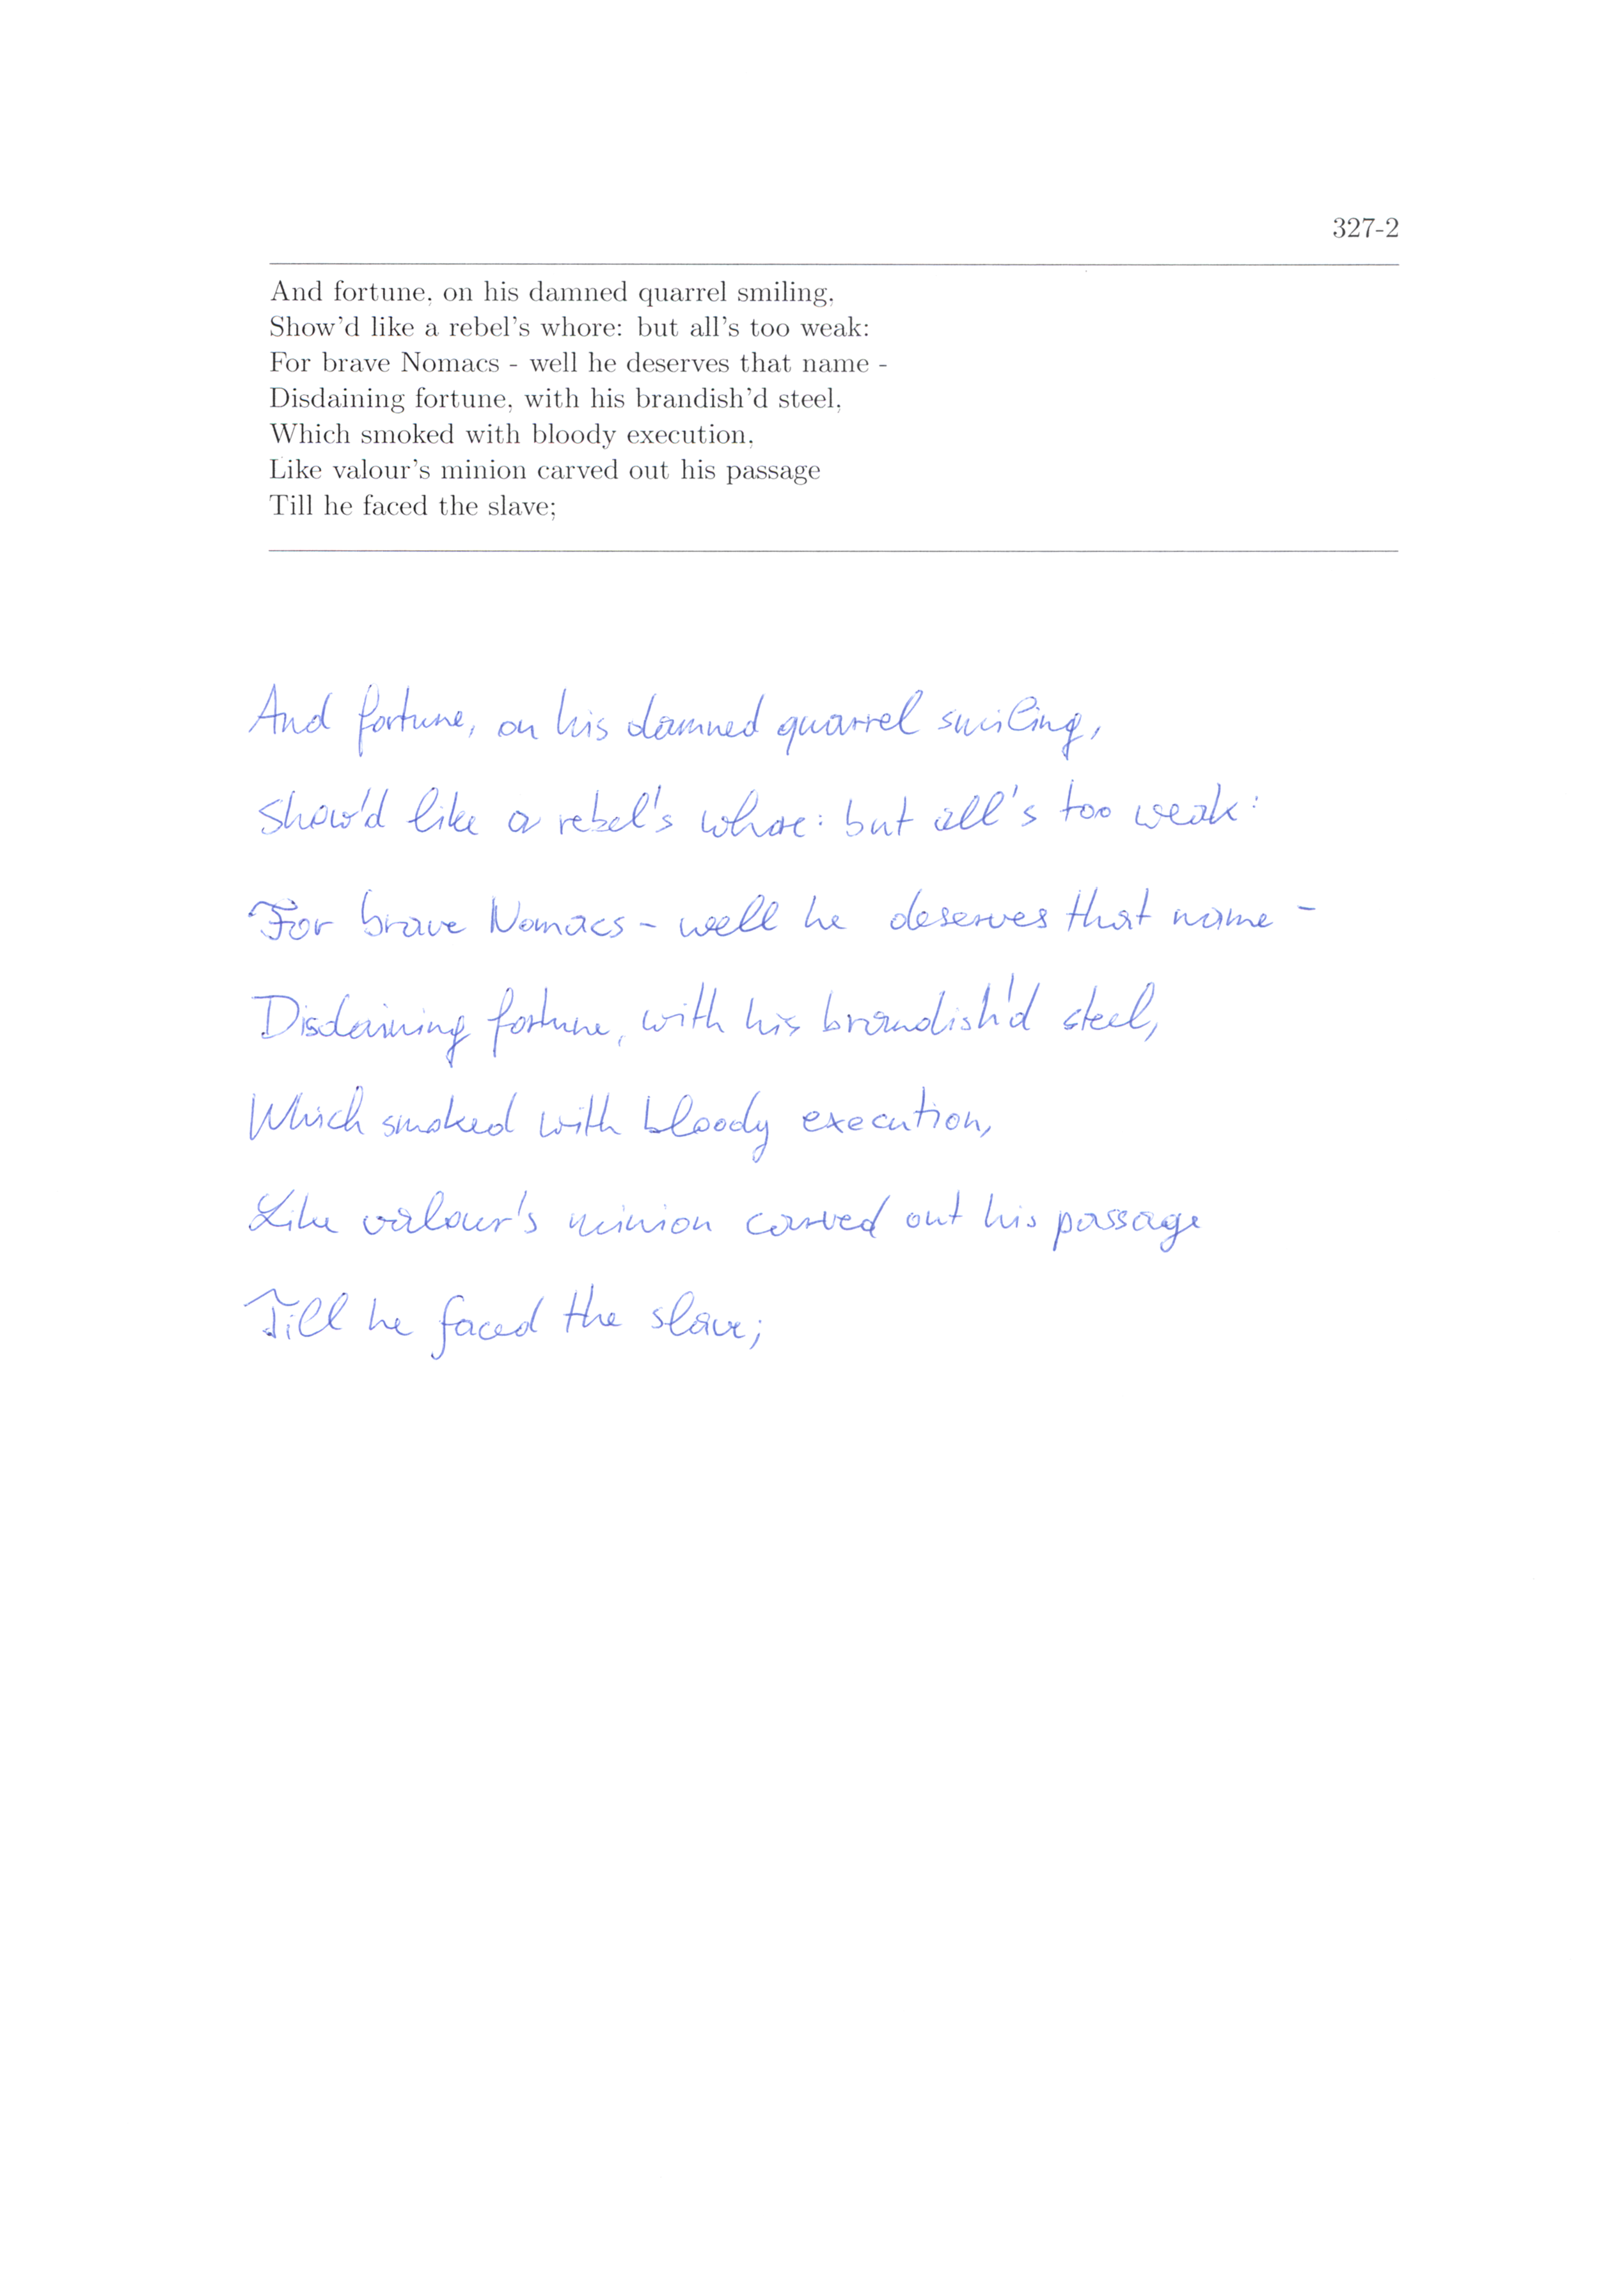 327-2
And fortune, on his damned quarrel smiling,
Show'd like a rebel's whore: but all's too weak:
For brave Nomacs - well he deserves that name -
Disdaining fortune, with his brandish'd steel,
Which smoked with bloody execution,
Like valour's minion carved out his passage
Till he faced the slave;
And fortune, on his damned quarrel smiling,
Show'd like a rebel's whore: but all's too weak:
For brave Nomacs - well he deserves that name -
Disdaining fortune, with his brandish'd steel,
Which smoked with bloody execution,
Like valour's minion carved out his passage
Till he faced the slave;